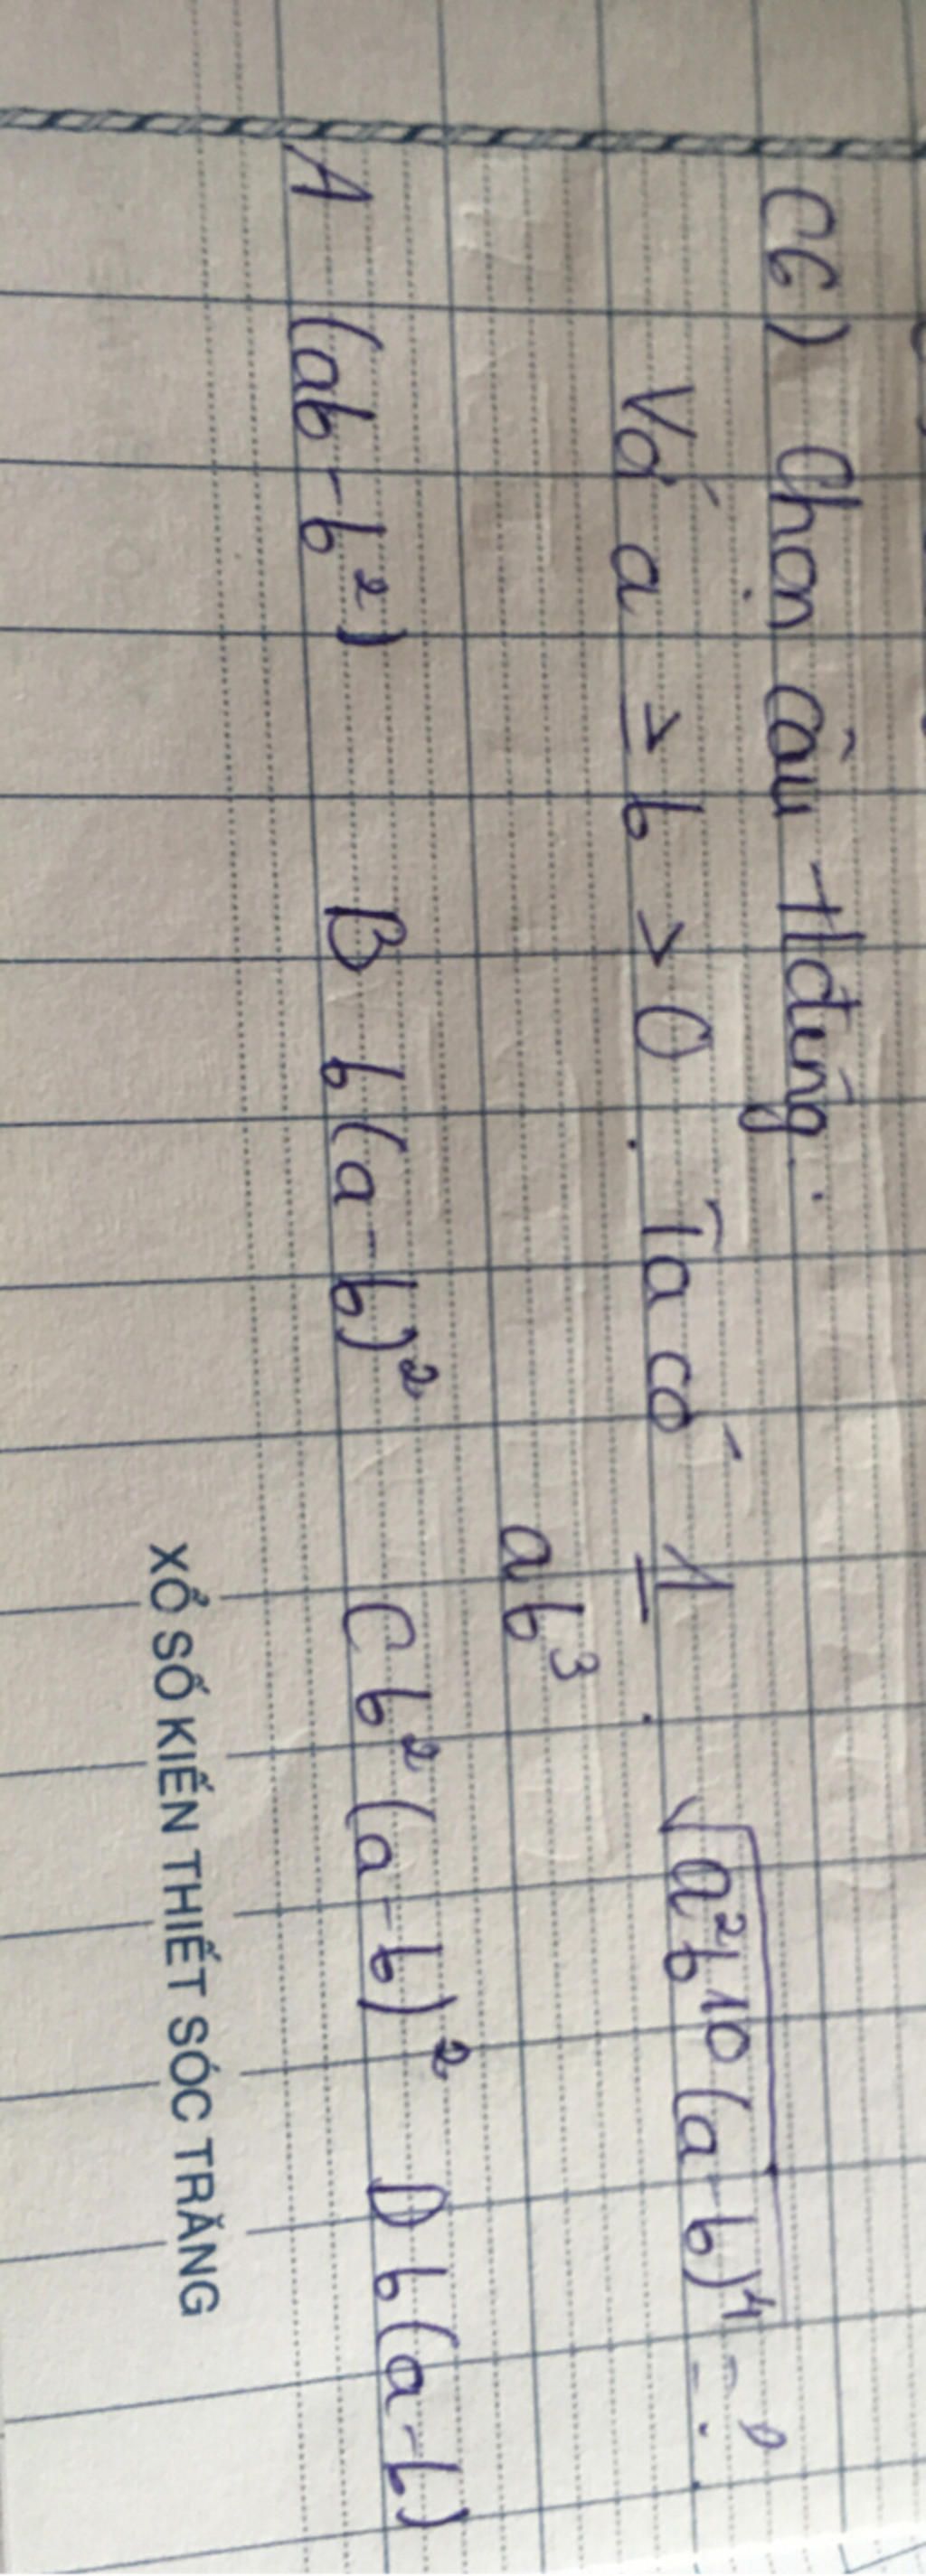 C6) Chọn câu tl đúng.
Với a ≥ b > 0. Ta có 1/ab³ . √a²b¹⁰(a-b)⁴ = ?
A (ab-b²) B b(a-b)² C b²(a-b)² D b(a-b)
XỔ SỐ KIẾN THIẾT SÓC TRĂNG